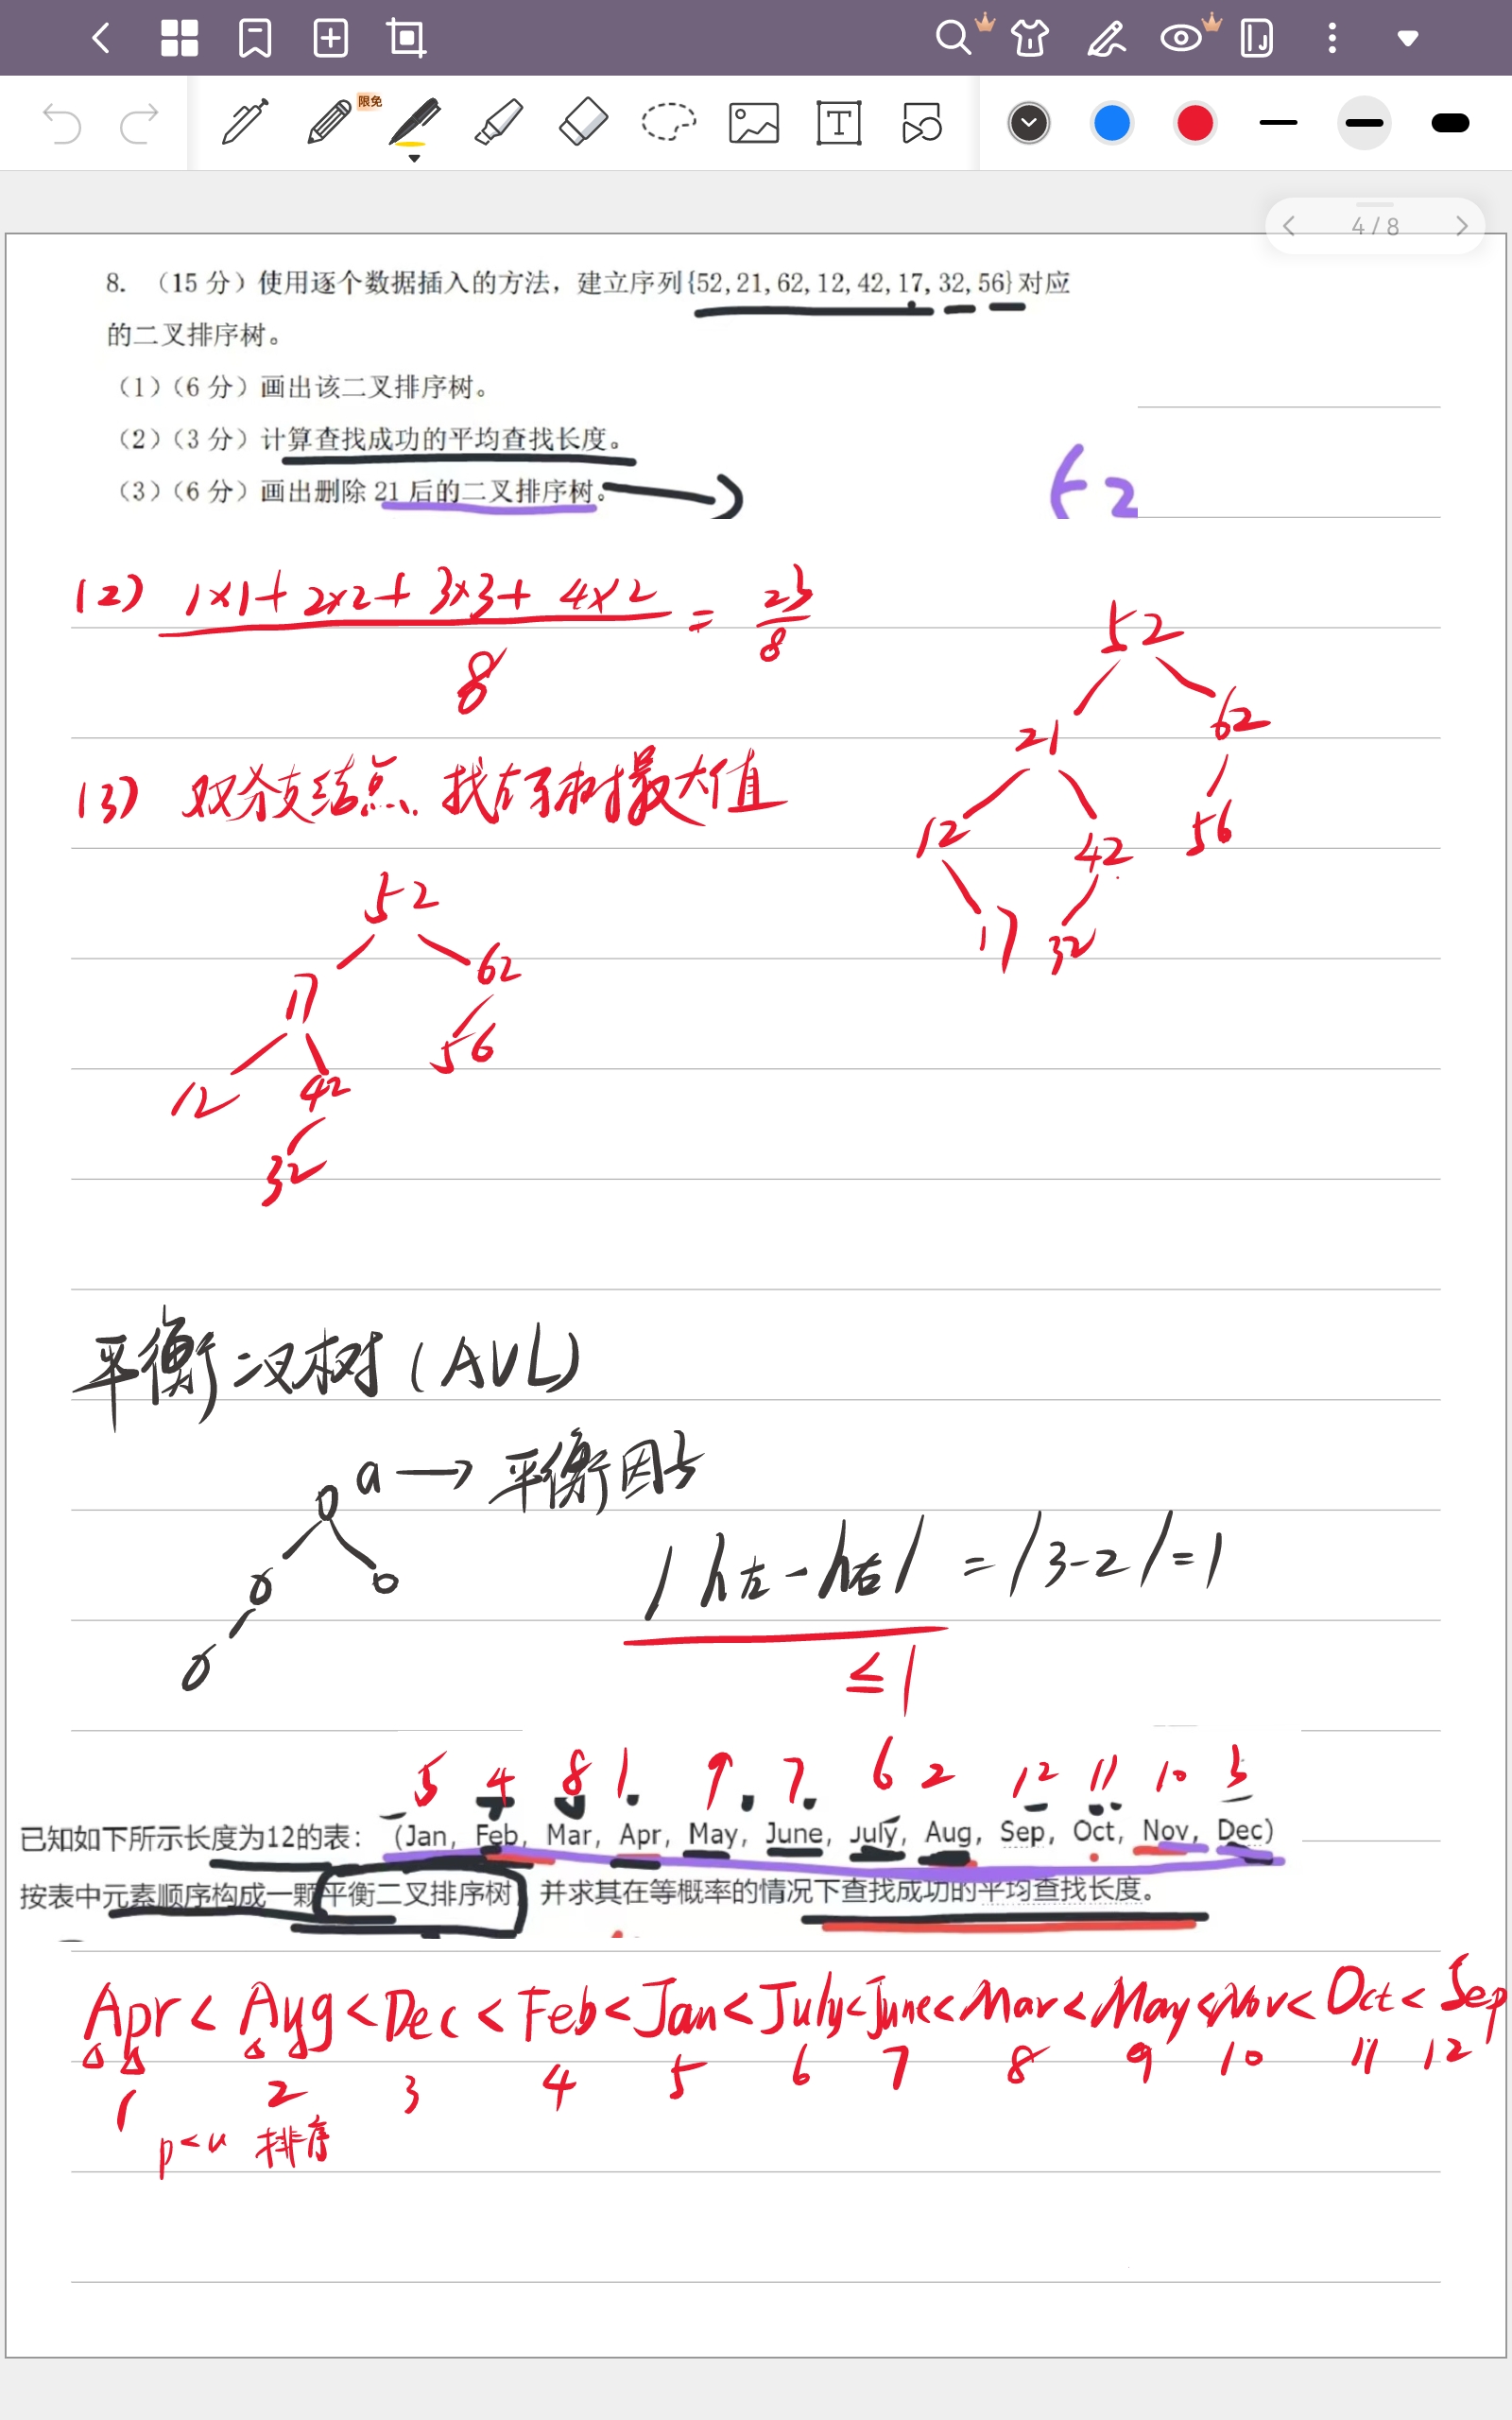 限免
4 / 8
8. （15 分）使用逐个数据插入的方法，建立序列{52,21,62,12,42,17,32,56}对应
的二叉排序树。
（1）（6 分）画出该二叉排序树。
（2）（3 分）计算查找成功的平均查找长度。
（3）（6 分）画出删除 21 后的二叉排序树。
(2) 1×1+2×2+3×3+4×2
8
= 23
8
52
21 62
12 42 56
17 32
(3) 双分支结点 找左子树最大值
52
17 62
12 42 56
32
平衡二叉树 (AVL)
a → 平衡因子
|h左-h右| = |3-2|=1
≤1
5 4 8 1 9 7 6 2 12 11 10 3
已知如下所示长度为12的表：（Jan, Feb, Mar, Apr, May, June, july, Aug, Sep, Oct, Nov, Dec）
按表中元素顺序构成一颗平衡二叉排序树，并求其在等概率的情况下查找成功的平均查找长度。
Apr < Aug < Dec < Feb < Jan < July < June < Mar < May < Nov < Oct < Sep
1 2 3 4 5 6 7 8 9 10 11 12
p<u 排序